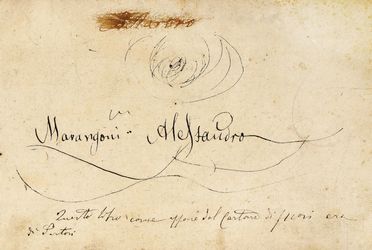 Marangoni Alessandro
Questo libro come appare dal Cartone di fuori era
di